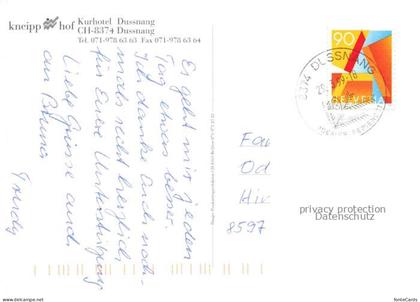 kneipp hof Kurhotel Dussnang
CH-8374 Dussnang
Tel. 071-978 63 63 Fax 071-978 63 64
Es geht mir jeden
Tag etwas besser.
Ich danke Euch noch-
mals recht herzlich
für Eure Unterstützung
Liebe Grüsse auch
an Bruno
Trudy
90
HELVETIA
8374 DUSSNANG
Fa
Od
Hir
8597
privacy protection
Datenschutz
www.delcampe.net
fontaCards